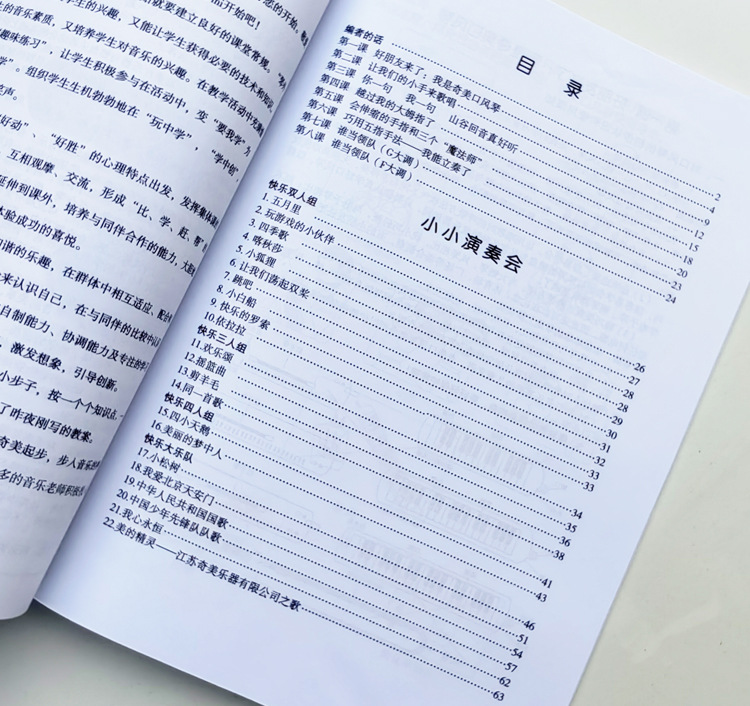 学生的兴趣，又能让学生获得必要的技术和知识
就要建立良好的课堂常规。
的音乐素质，又培养学生对音乐的兴趣。在教学活动中
趣味练习”，让学生积极参与在活动中，变“要我学”为
学”。组织学生生机勃勃地在“玩中学”，“学中创”，
笑声。
好动”、“好胜”的心理特点出发，发挥集体
互相观摩、交流，形成“比、学、赶、帮”
延伸到课外，培养与同伴合作的能力，大胆
体验成功的喜悦。
和谐的乐趣，在群体中相互适应、配合
来认识自己，在与同伴的比较中认
自制能力、协调能力及专注的学
激发想象，引导创新。
小步子，按一个个知识点
了昨夜刚写的教案。
奇美起步，步入音乐的
多的音乐老师积极
目 录
编者的话……2
第一课 好朋友来了，我是奇美口风琴……4
第二课 让我们的小手来歌唱……9
第三课 你一句 我一句 山谷回音真好听……12
第四课 越过我的大姆指了……15
第五课 会伸缩的手指和三个“魔法师”……18
第六课 巧用五指手法——我能立奏了……20
第七课 谁当领队（G大调）……23
第八课 谁当领队（F大调）……24
小小演奏会
快乐双人组
1. 五月里……26
2. 玩游戏的小伙伴……27
3. 四季歌……28
4. 喀秋莎……28
5. 小狐狸……29
6. 让我们荡起双桨……30
7. 跳吧……31
8. 小白船……32
9. 快乐的罗索……33
10.依拉拉……33
快乐三人组
11.欢乐颂……34
12.摇篮曲……35
13.剪羊毛……36
14.同一首歌……38
快乐四人组
15.四小天鹅……41
16.美丽的梦中人……43
快乐大乐队
17.小松树……46
18.我爱北京天安门……51
19.中华人民共和国国歌……54
20.中国少年先锋队队歌……57
21.我心永恒……62
22.美的精灵——江苏奇美乐器有限公司之歌……63